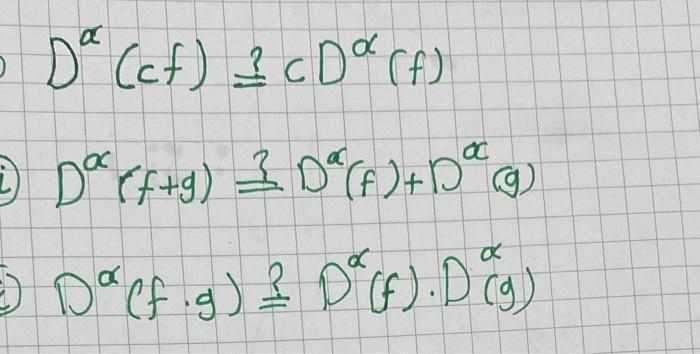 ) D^α (cf) ≟ c D^α (f)
i) D^α (f+g) ≟ D^α (f) + D^α (g)
i) D^α (f . g) ≟ D^α (f) . D^α (g)